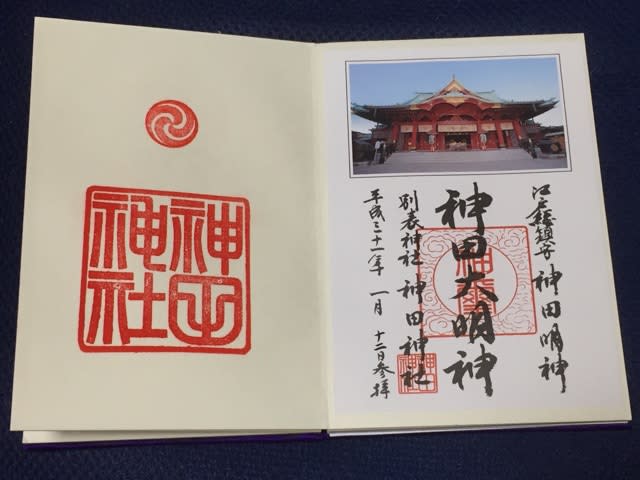 江戸総鎮守 神田明神
神田大明神
別表神社 神田神社
神田
神社
平成三十一年 一月 十二日参拝
神田
神社